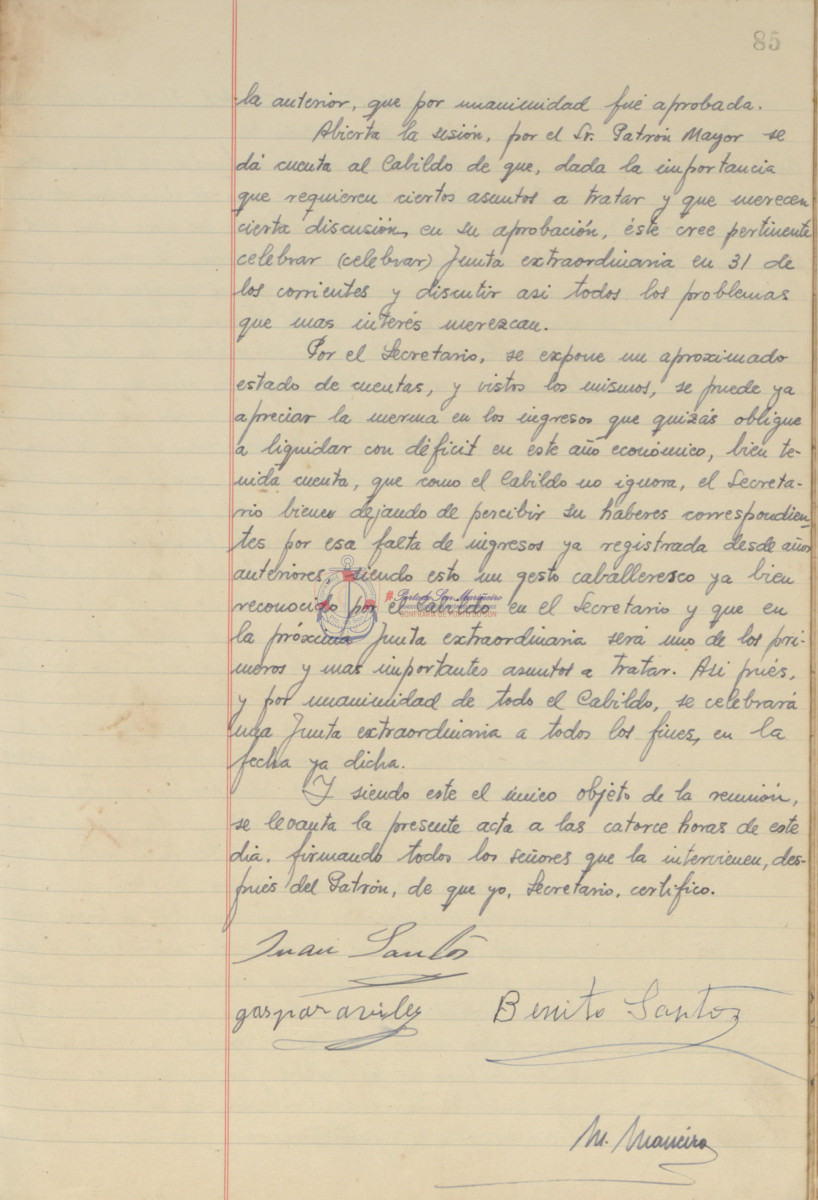 85
la anterior, que por unanimidad fué aprobada.
Abierta la sesión, por el Sr. Patrón Mayor se
dá cuenta al Cabildo de que, dada la importancia
que requieren ciertos asuntos a tratar y que merecen
cierta discusión, en su aprobación, éste cree pertinente
celebrar (celebrar) Junta extraordinaria en 31 de
los corrientes y discutir asi todos los problemas
que mas interés merezcan.
Por el Secretario, se expone un aproximado
estado de cuentas, y vistos los mismos, se puede ya
apreciar la merma en los ingresos que quizás obligue
a liquidar con déficit en este año económico, bien te-
nida cuenta, que como el Cabildo no ignora, el Secreta-
rio biene dejando de percibir su haberes correspondien-
tes por esa falta de ingresos ya registrada desde años
anteriores, siendo esto un gesto caballeresco ya bien
reconocido por el Cabildo en el Secretario y que en
la próxima Junta extraordinaria será uno de los pri-
meros y mas importantes asuntos a tratar. Asi pués,
y por unanimidad de todo el Cabildo, se celebrará
una Junta extraordinaria a todos los fines, en la
fecha ya dicha.
Y siendo este el único objeto de la reunión,
se levanta la presente acta a las catorce horas de este
dia, firmando todos los señores que la intervienen, des-
pués del Patrón, de que yo, Secretario, certifico.
Juan Santos
gaspar aviles
Benito Santos
M. Maneiro